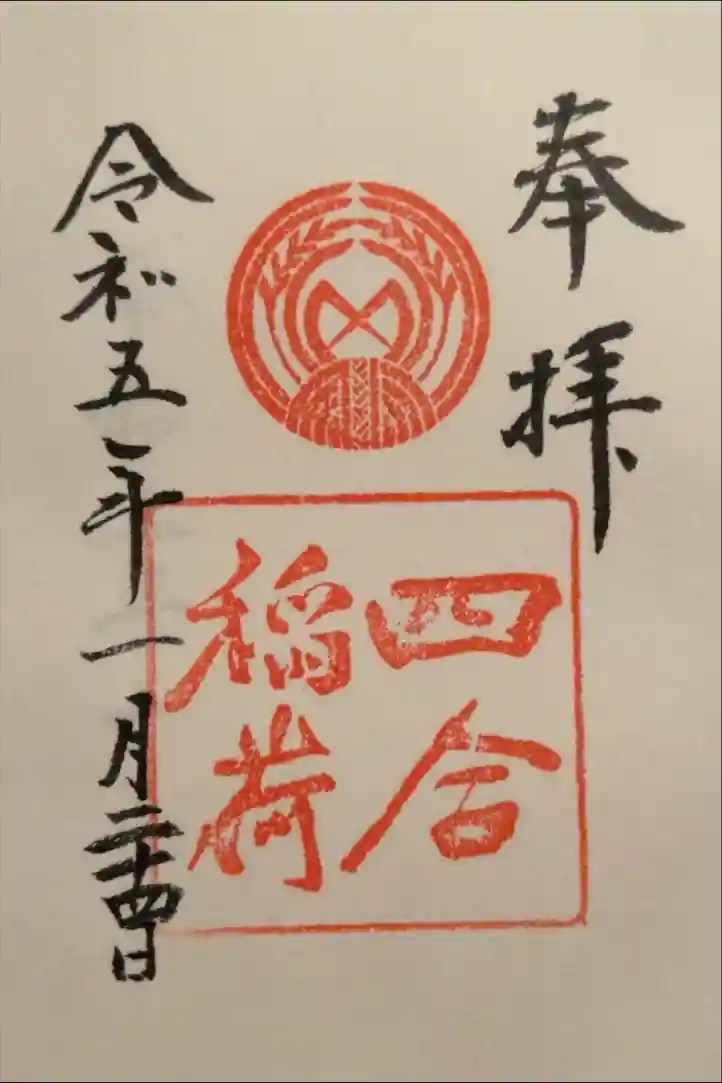 奉拝
四合
稲荷
令和五年一月二十四日